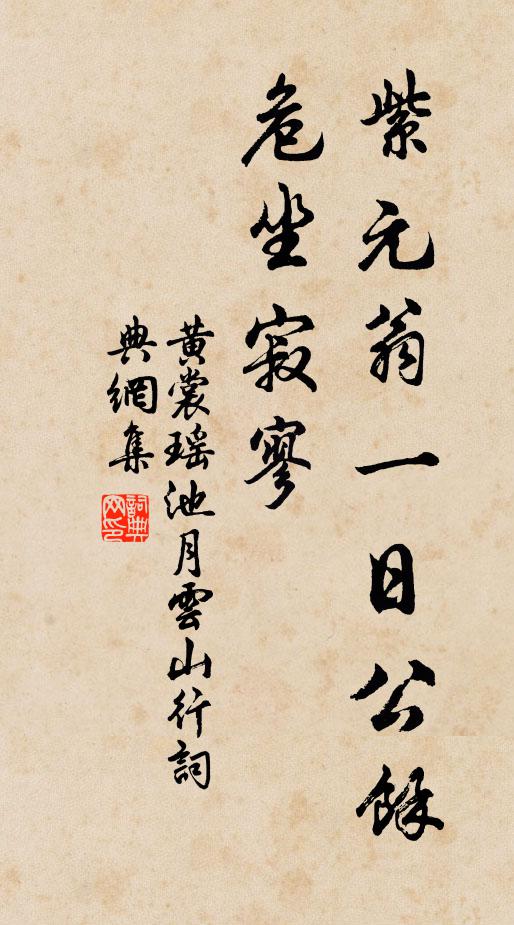 紫元翁一日公餘
危坐寂寥
黃裳瑤池月雲山行詞
典網集
詞典網印